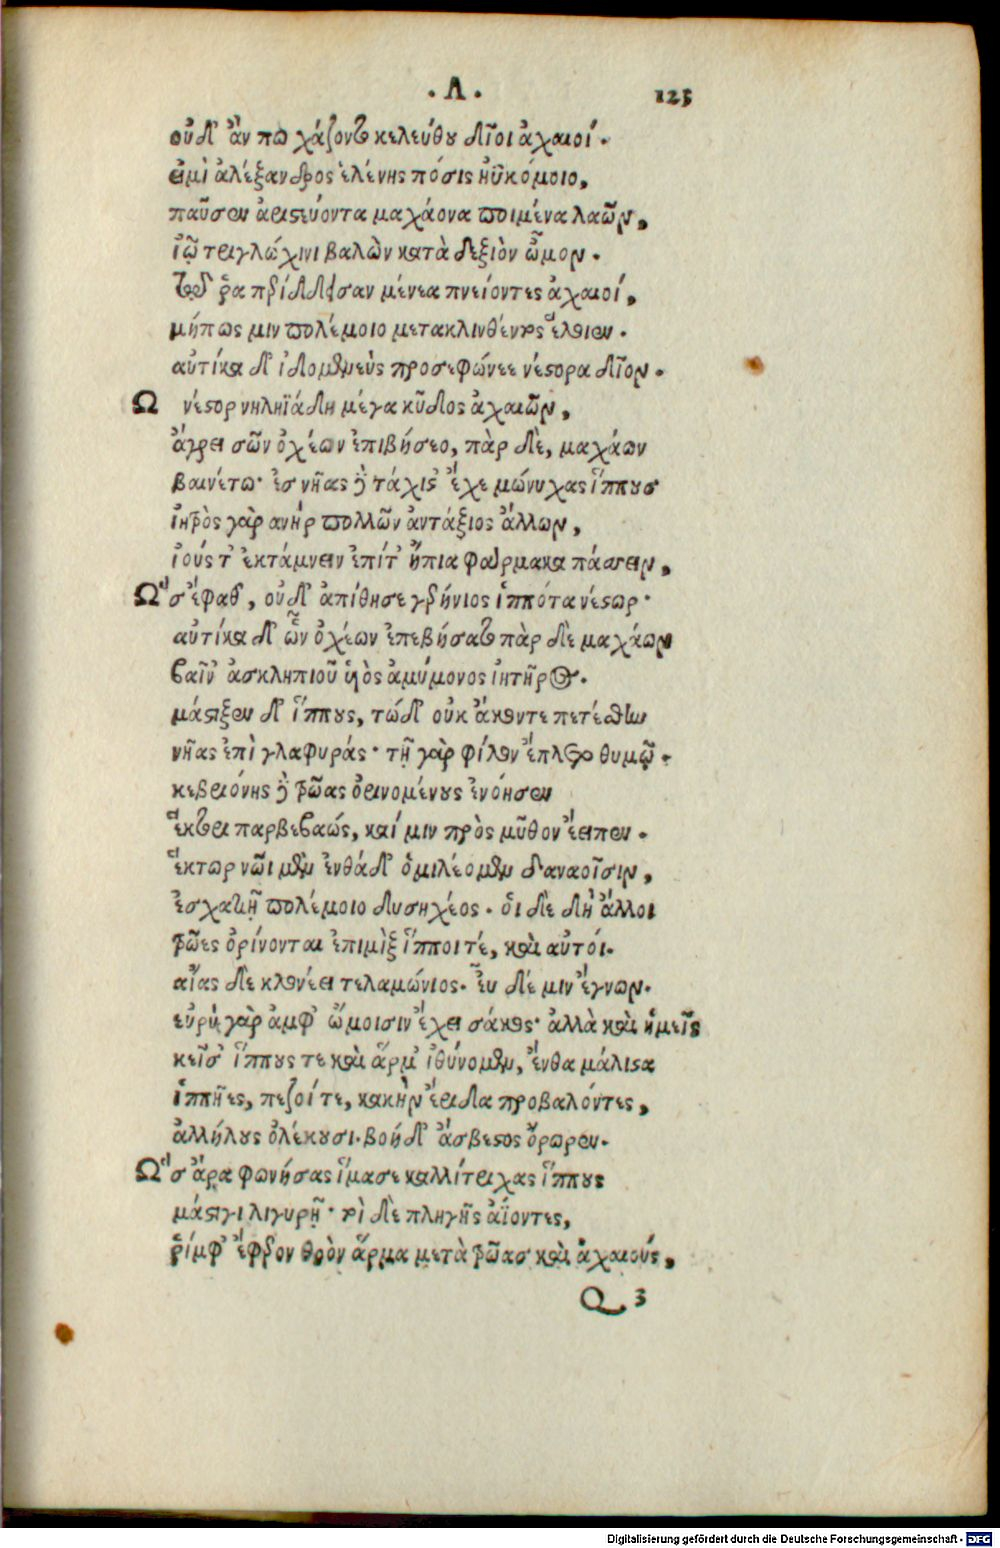 . Λ . 125
οὐδ' ἄν πω χάζοντο κελεύθου δῖοι ἀχαιοί.
εἰ μὶ ἀλέξανδρος ἑλένης πόσις ἠϋκόμοιο,
παῦσεν ἀριστεύοντα μαχάονα ποιμένα λαῶν,
ἰῷ τριγλώχινι βαλὼν κατὰ δεξιὸν ὦμον.
τῷ ῥα περίδδεισαν μένεα πνείοντες ἀχαιοί,
μήπως μιν πολέμοιο μετακλινθέντος ἕλοιεν.
αὐτίκα δ' ἰδομενεὺς προσεφώνεε νέστορα δῖον.
Ω νέστορ νηληϊάδη μέγα κῦδος ἀχαιῶν,
ἄγρει σῶν ὀχέων ἐπιβήσεο, πὰρ δὲ, μαχάων
βαινέτω· ἐσ νῆας δὲ τάχιστ' ἔχε μώνυχας ἵππους
ἰητρὸς γὰρ ανὴρ πολλῶν ἀντάξιος ἄλλων,
ἰούς τ' ἐκτάμνειν ἐπίτ' ἤπια φάρμακα πάσσειν,
Ω῞ς ἔφατ', οὐδ' ἀπίθησε γερήνιος ἱππότα νέστωρ·
αὐτίκα δ' ὧν ὀχέων ἐπεβήσατο πὰρ δὲ μαχάων
βαῖν' ἀσκληπιοῦ ὑιὸς ἀμύμονος ἰητῆρος.
μάστιξεν δ' ἵππους, τώδ' οὐκ ἄκοντε πετέσθην
νῆας ἐπὶ γλαφυράς· τῇ γὰρ φίλον ἔπλετο θυμῷ.
κεβριόνης δὲ τρῶας ὀρινομένους ἐνόησεν
ἕκτορι παρβεβαώς, καί μιν πρὸς μῦθον ἔειπεν.
ἕκτωρ νῶι μὲν ἐνθάδ' ὁμιλέομεν δαναοῖσιν,
ἐσχατιῇ πολέμοιο δυσηχέος. ὁι δὲ δὴ ἄλλοι
τρῶες ὀρίνονται ἐπιμὶξ ἵπποι τέ, καὶ αὐτόι.
αἴας δὲ κλονέει τελαμώνιος. ἒυ δέ μιν ἔγνων.
εὐρὺ γὰρ ἀμφ' ὤμοισιν ἔχει σάκος· ἀλλὰ καὶ ἡμεῖς
κεῖσ' ἵππους τε καὶ ἅρμ' ἰθύνομεν, ἔνθα μάλιστα
ἱππῆες, πεζοί τε, κακὴν ἔειδα προβαλόντες,
ἀλλήλους ὀλέκουσι. βοὴ δ' ἄσβεστος ὄρωρεν.
Ω῞ς ἄρα φωνήσας ἵμασε καλλίτριχας ἵππους
μάστιγι λιγυρῇ· τοὶ δὲ πληγῆς ἀΐοντες,
ῥίμφ' ἔφερον θοὸν ἅρμα μετὰ τρῶας καὶ ἀχαιούς,
Q 3
Digitalisierung gefördert durch die Deutsche Forschungsgemeinschaft - DFG